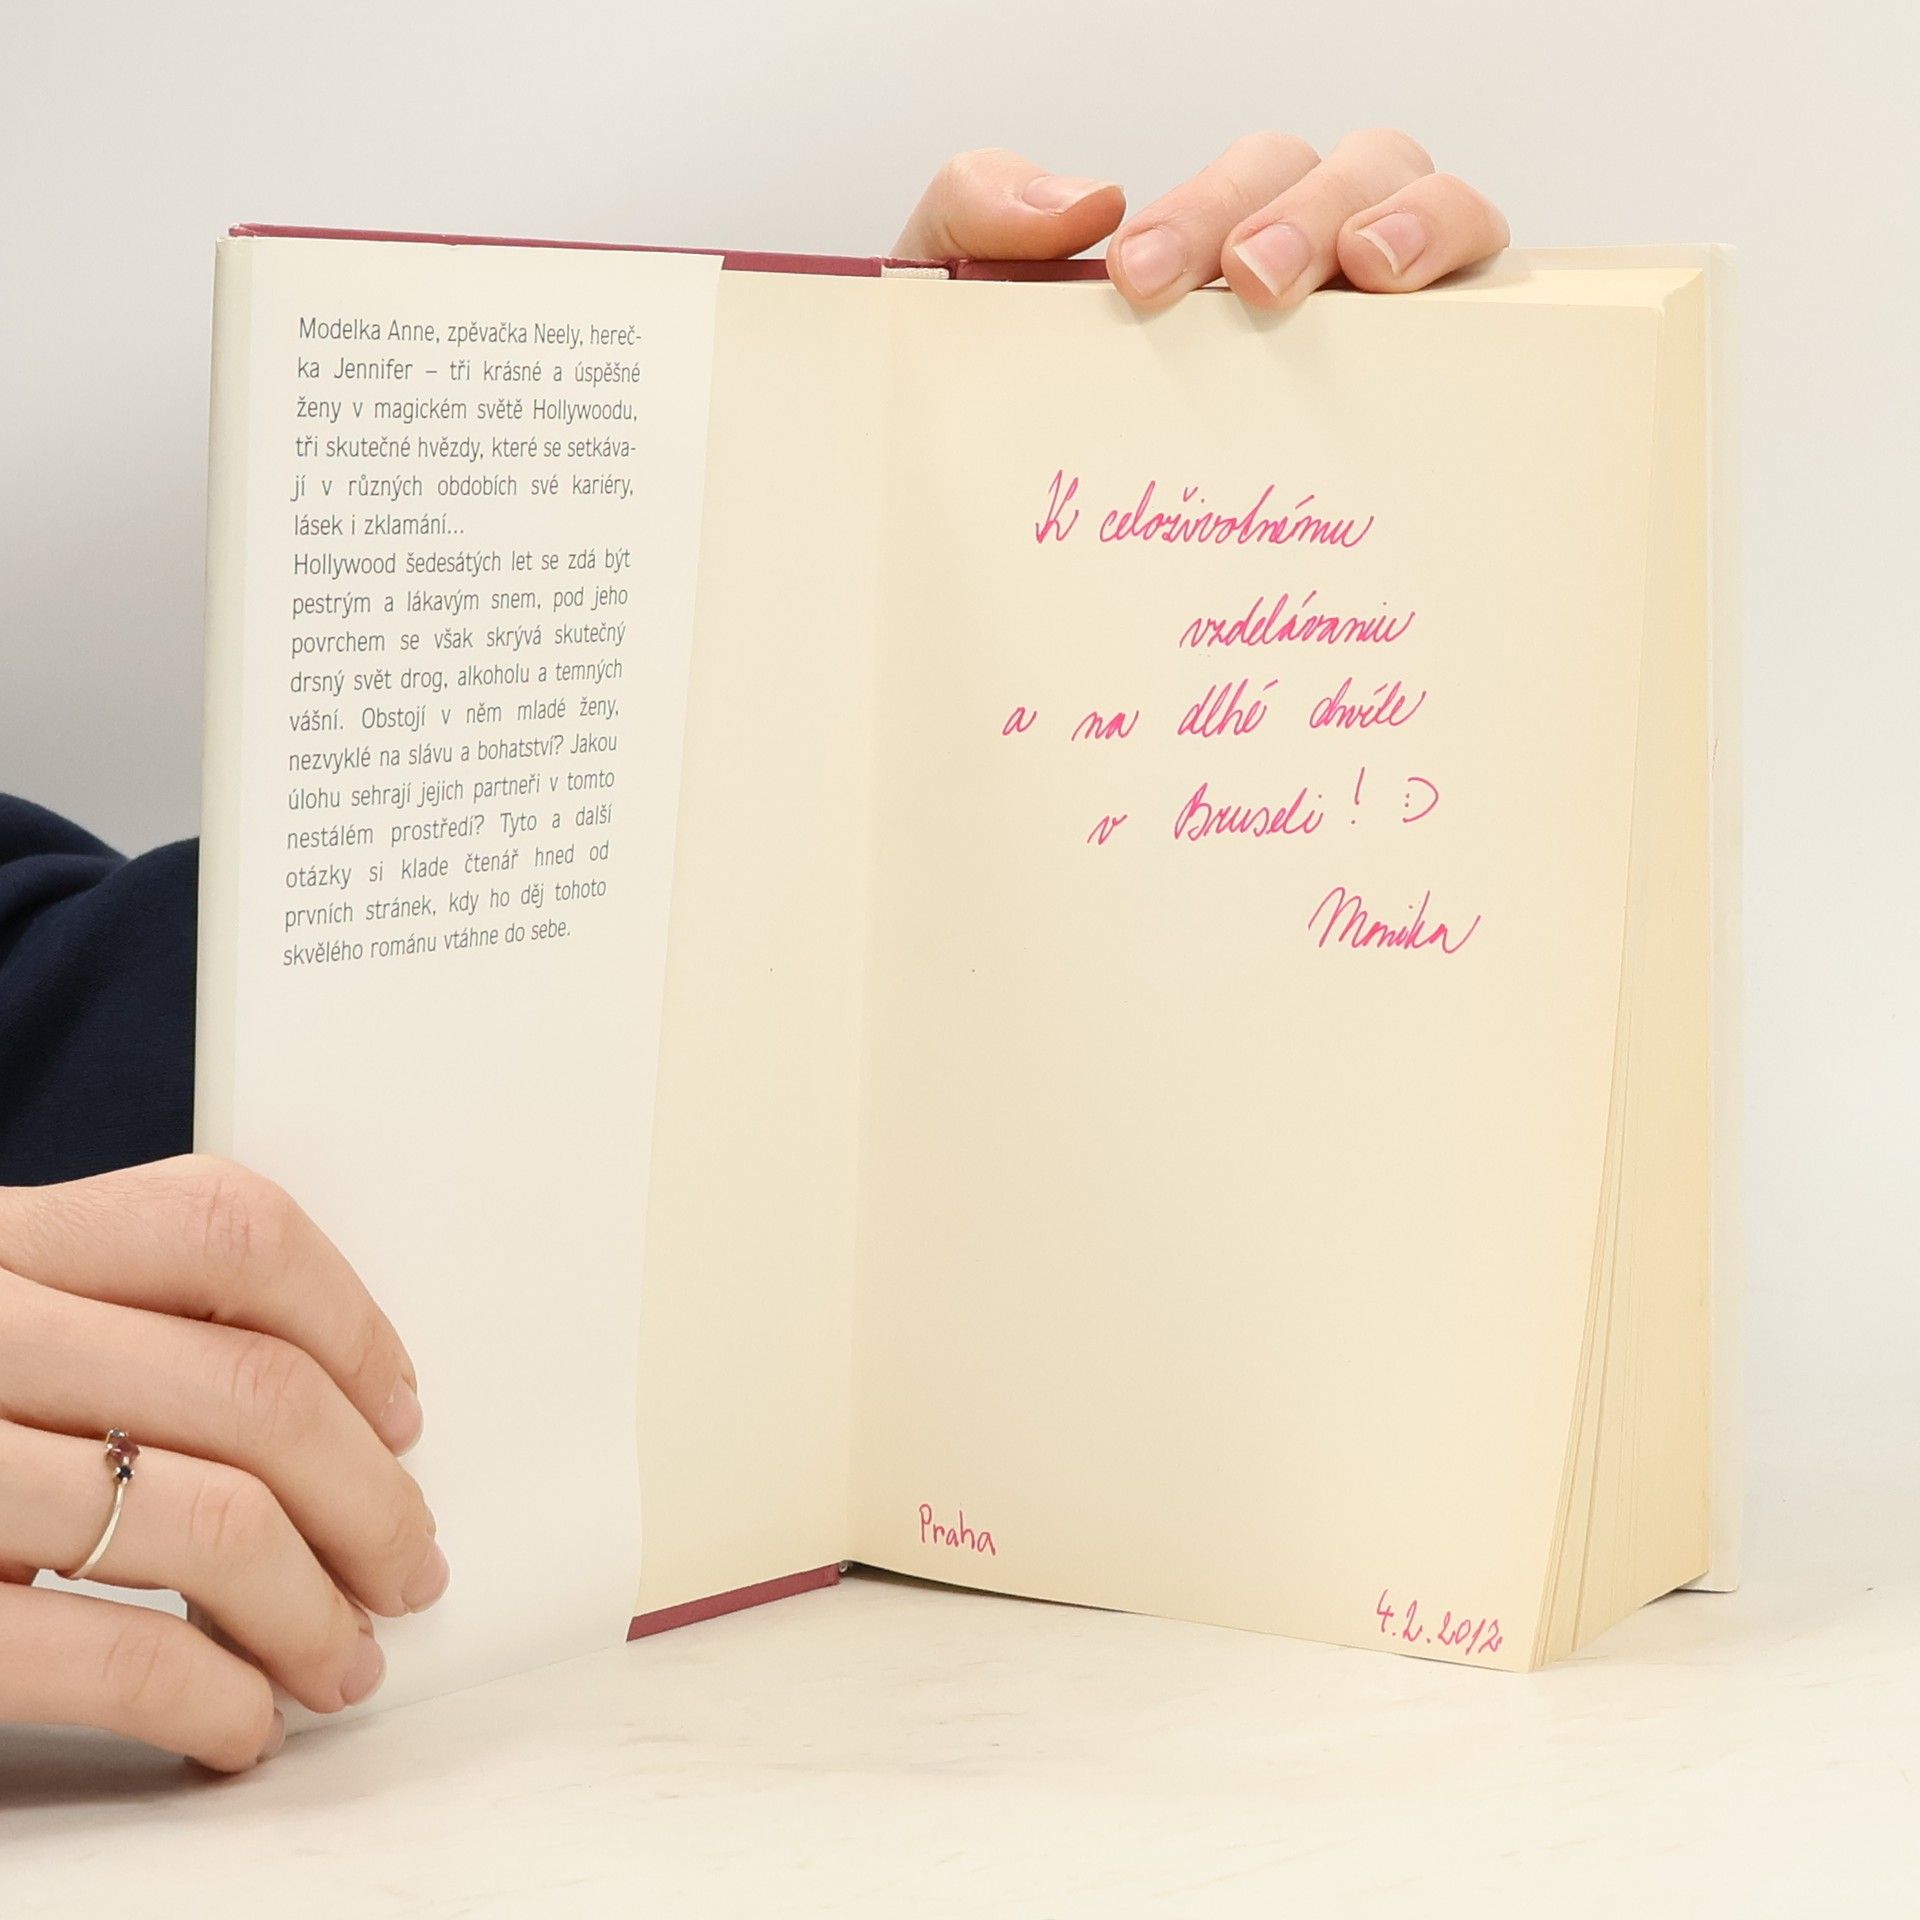 Modelka Anne, zpěvačka Neely, hereč-
ka Jennifer – tři krásné a úspěšné
ženy v magickém světě Hollywoodu,
tři skutečné hvězdy, které se setkáva-
jí v různých obdobích své kariéry,
lásek i zklamání...
Hollywood šedesátých let se zdá být
pestrým a lákavým snem, pod jeho
povrchem se však skrývá skutečný
drsný svět drog, alkoholu a temných
vášní. Obstojí v něm mladé ženy,
nezvyklé na slávu a bohatství? Jakou
úlohu sehrají jejich partneři v tomto
nestálém prostředí? Tyto a další
otázky si klade čtenář hned od
prvních stránek, kdy ho děj tohoto
skvělého románu vtáhne do sebe.
K celoživotnému
vzdelávaniu
a na dlhé chvíle
v Bruseli! :)
Monika
Praha
4.2.2012